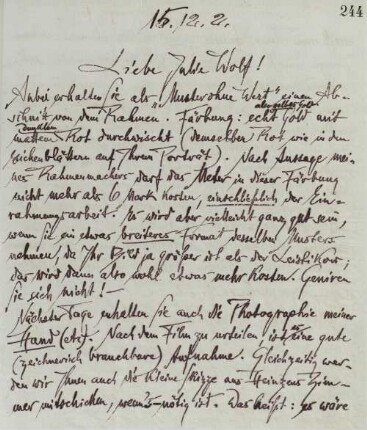 244
15.12.2.
Liebe Julie Wolf!
Anbei erhalten Sie als „Muster ohne Wert" einen Ab-
schnitt von dem Rahmen. Färbung: echt Gold mit
dunklem
mattem Rot durchwischt (demselben Rot wie in den
Eichenblättern auf Ihrem Porträt). Nach Aussage mei-
nes Rahmenmachers darf das Meter in dieser Färbung
nicht mehr als 6 Mark kosten, einschließlich der Ein-
rahmungsarbeit. Es wird aber vielleicht ganz gut sein,
wenn Sie ein etwas breiteres Format desselben Musters
nehmen, da Ihr Bild ja größer ist als der Leistikow;
das wird dann also wohl etwas mehr kosten. Genieren
Sie sich nicht! —
Nächster Tage erhalten Sie auch die Photographie meiner
Hand (etc). Nach dem Film zu urteilen, ist es eine gute
(zeichnerisch brauchbare) Aufnahme. Gleichzeitig wer-
den wir Ihnen auch die kleine Skizze aus Heinzens Zim-
mer mitschicken, wenn's nötig ist. Das heißt: es wäre